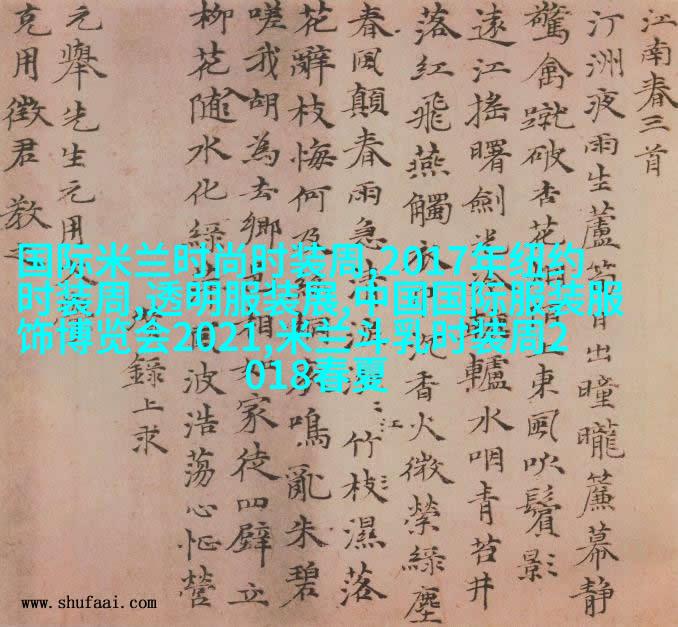 江南春三首
汀洲夜雨生蘆笋日出曈曨簾幕静
驚禽蹴破杏花烟陌上東風吹鬢影
遠江搖曙劍光寒轆轤水咽青苔井
落紅飛燕觸衣巾沉香火微縈緑塵
春風顛春雨急清泓泓江竹枝濕落
花辭枝悔何及絲桐哀鳴亂朱碧
嗟我胡為去鄉邑相如家徒四壁立
柳花随水化緑萍風波浩蕩心怔營
瓚録上求
元舉先生元用
克用徵君教之
国际米兰时尚时装周,2017年纽约
时装周,透明服装展,中国国际服装服
饰博览会2021,米兰斗乳时装周2
018春夏
www.shufaai.com